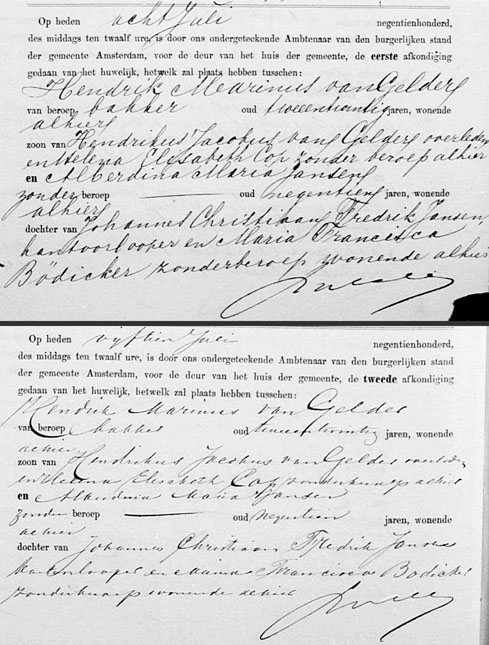 Op heden acht Juli negentienhonderd,
des middags ten twaalf ure, is door ons ondergeteekende Ambtenaar van den burgerlijken stand
der gemeente Amsterdam, voor de deur van het huis der gemeente, de eerste afkondiging
gedaan van het huwelijk, hetwelk zal plaats hebben tusschen:
Hendrik Marinus van Gelder
van beroep bakker oud tweeentwintig jaren, wonende
alhier
zoon van Hendrikus Jacobus van Gelder overleden
en Helena Elisabeth Cop zonder beroep alhier
en Alberdina Maria Jansen
zonder beroep oud negentien jaren, wonende
alhier
dochter van Johannes Christiaan Fredrik Jansen,
kantoorlooper en Maria Francisca
Bödicker zonder beroep wonende alhier
Op heden vijftien Juli negentienhonderd,
des middags ten twaalf ure, is door ons ondergeteekende Ambtenaar van den burgerlijken stand
der gemeente Amsterdam, voor de deur van het huis der gemeente, de tweede afkondiging
gedaan van het huwelijk, hetwelk zal plaats hebben tusschen:
Hendrik Marinus van Gelder
van beroep bakker oud tweeentwintig jaren, wonende
alhier
zoon van Hendrikus Jacobus van Gelder overleden
en Helena Elisabeth Cop zonder beroep alhier
en Maria Jansen
zonder beroep oud negentien jaren, wonende
alhier
dochter van Johannes Christiaan Fredrik Jansen
kantoorlooper en Maria Francisca Bödicker
zonder beroep wonende alhier